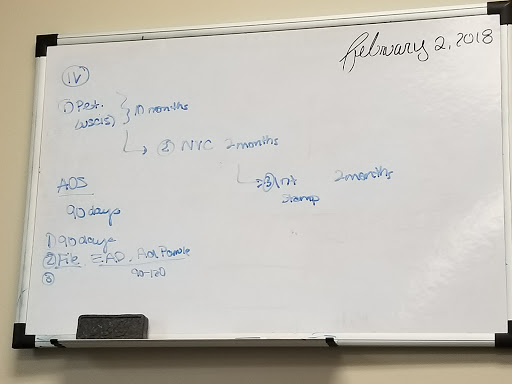 February 2, 2018
IV
1) Pet. 10 months
(USCIS)
2 NYC 2 months
3 Int 2 months
Stamp
AOS
90 days
1) 90 days
2 File EAD, Adv Parole
90-120
3